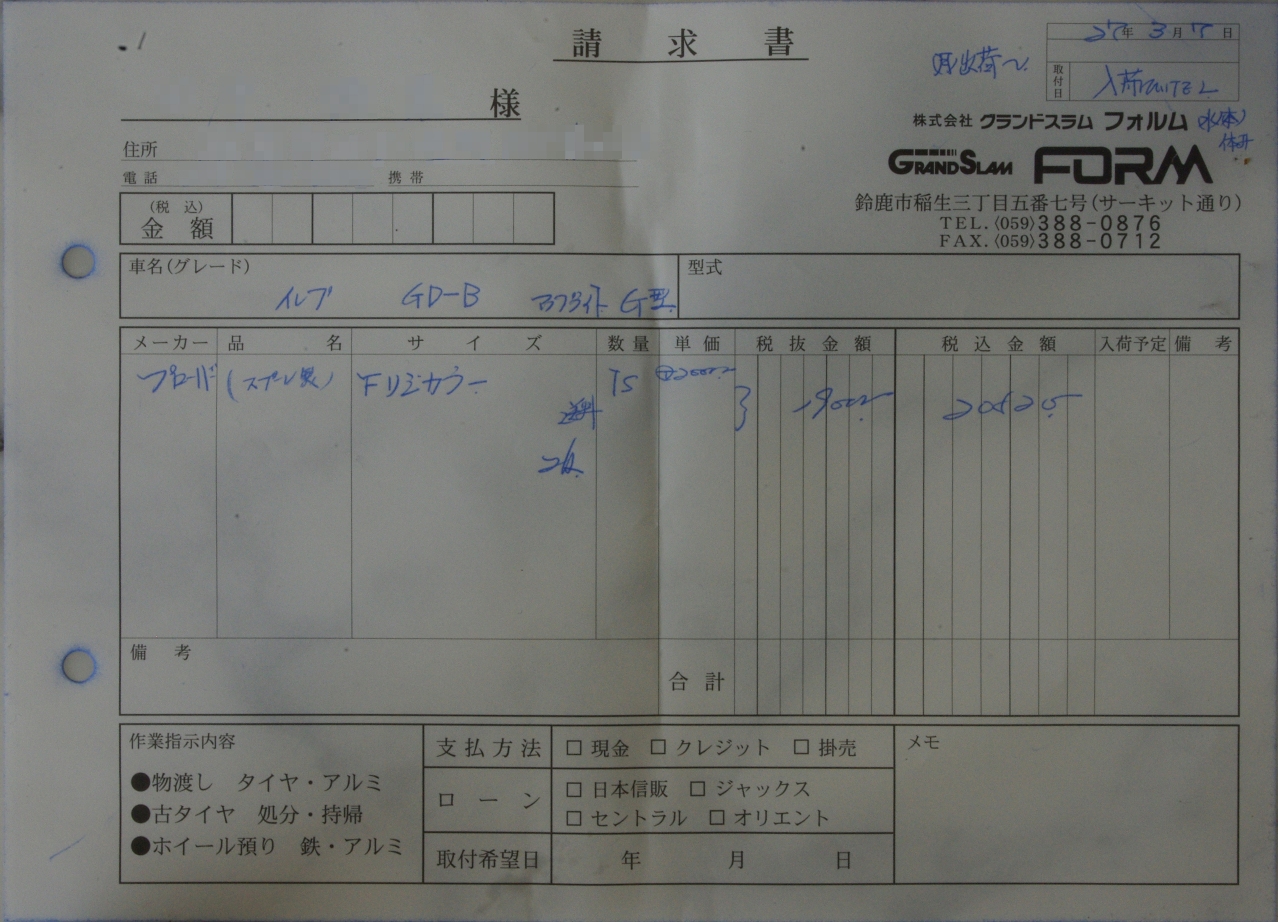 請求書
27年 3月 7日
取付日
様
株式会社 グランドスラム フォルム
GRANDSLAM FORM
鈴鹿市稲生三丁目五番七号(サーキット通り)
TEL.〈059〉388-0876
FAX.〈059〉388-0712
住所
電話 携帯
(税込)
金額
車名(グレード) 型式
GD-B G型
メーカー 品名 サイズ 数量 単価 税抜金額 税込金額 入荷予定 備考
Fリジカラー 1S
送料 19000 20520
備考
合計
作業指示内容
●物渡し タイヤ・アルミ
●古タイヤ 処分・持帰
●ホイール預り 鉄・アルミ
支払方法 □ 現金 □ クレジット □ 掛売
ローン □ 日本信販 □ ジャックス
□ セントラル □ オリエント
取付希望日 年 月 日
メモ